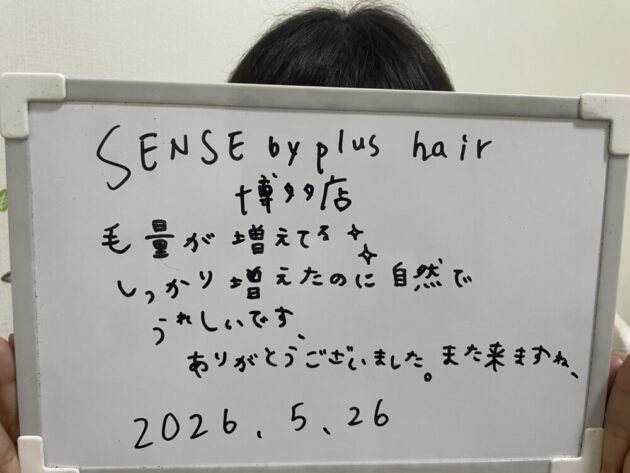 SENSE by plus hair
博多店
毛量が増えてる✨
しっかり増えたのに自然で
うれしいです、
ありがとうございました。また来ますね、
2026、5、26